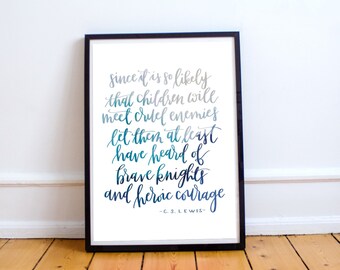 since it is so likely
that children will
meet cruel enemies
let them at least
have heard of
brave knights
and heroic courage
-C.S. LEWIS-